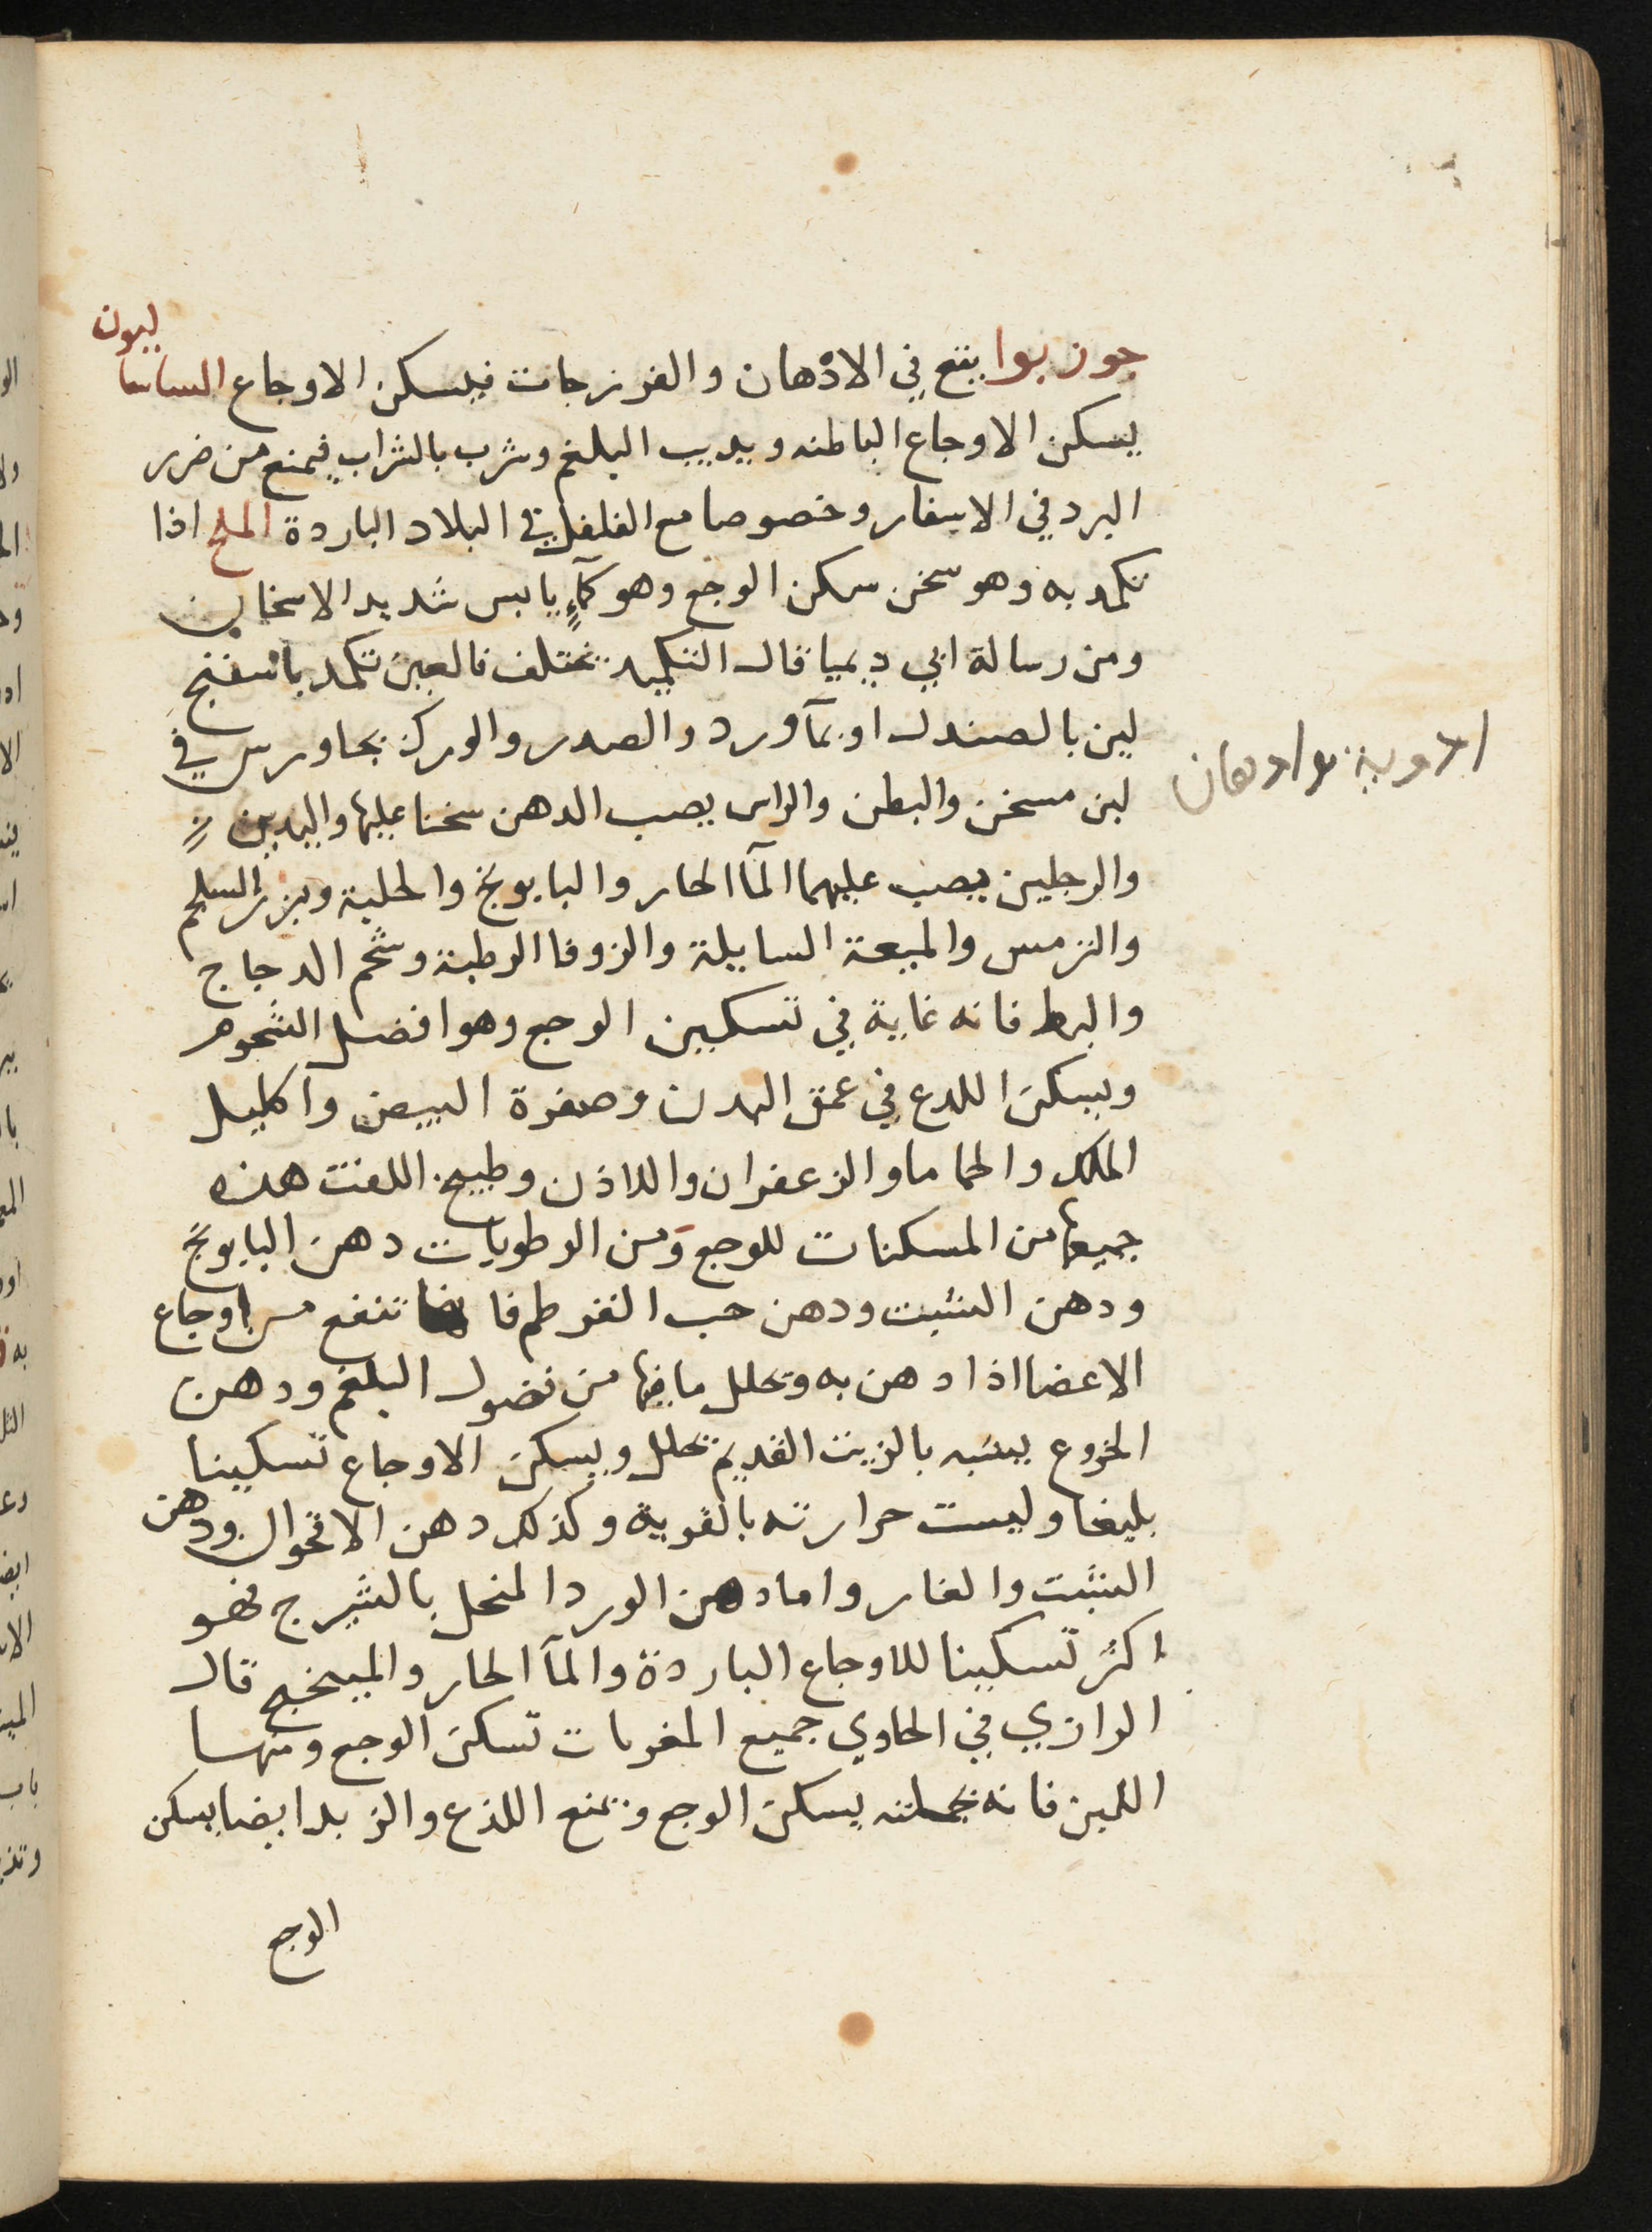 جوز بوا يقع في الادهان والفرزجات فيسكن الاوجاع الساساليون
يسكن الاوجاع الباطنه ويذيب البلغم وشرب بالشراب فيمنع من ضرر
البرد في الاسفار وخصوصا مع الفلفل في البلاد الباردة الملح اذا
تكمد به وهو سخن سكن الوجع وهو كماد يابس شديد الاسخان
ومن رسالة ابي ديميا قال التكميد يختلف فالعين تكمد باسفنج
لين بالصندل او بمآ ورد والصدر والورك بجاورس في
لبن مسخن والبطن والراس يصب الدهن سخنا عليها واليدين
والرجلين يصب عليهما المآ الحار والبابونج والحلبة وبزر السلجم
والترمس والميعة السايلة والزوفا الرطبة وشحم الدجاج
والبط فانه غاية في تسكين الوجع وهو افضل الشحوم
ويسكن اللدع في عمق البدن وصفرة البيض واكليل
الملك والحماما والزعفران واللاذن وطبيخ اللفت هذه
جميعها من المسكنات للوجع ومن الرطوبات دهن البابونج
ودهن الشبت ودهن حب القرطم فانها تنفع من اوجاع
الاعضا اذا دهن به وتحلل ما فيها من فضول البلغم ودهن
الخروع يشبه بالزيت القديم يحلل ويسكن الاوجاع تسكينا
بليغا وليست حرارته بالقوية وكذلك دهن الاقحوان ودهن
الشبت والغار واما دهن الورد المنحل بالشيرج فهو
اكثر تسكينا للاوجاع الباردة والمآ الحار والميبختج قال
الرازي في الحاوي جميع المغريات تسكن الوجع ومنها
اللبن فانه بجملته يسكن الوجع ويمنع اللذع والزبد ايضا يسكن
الوجع
ادوية وادهان